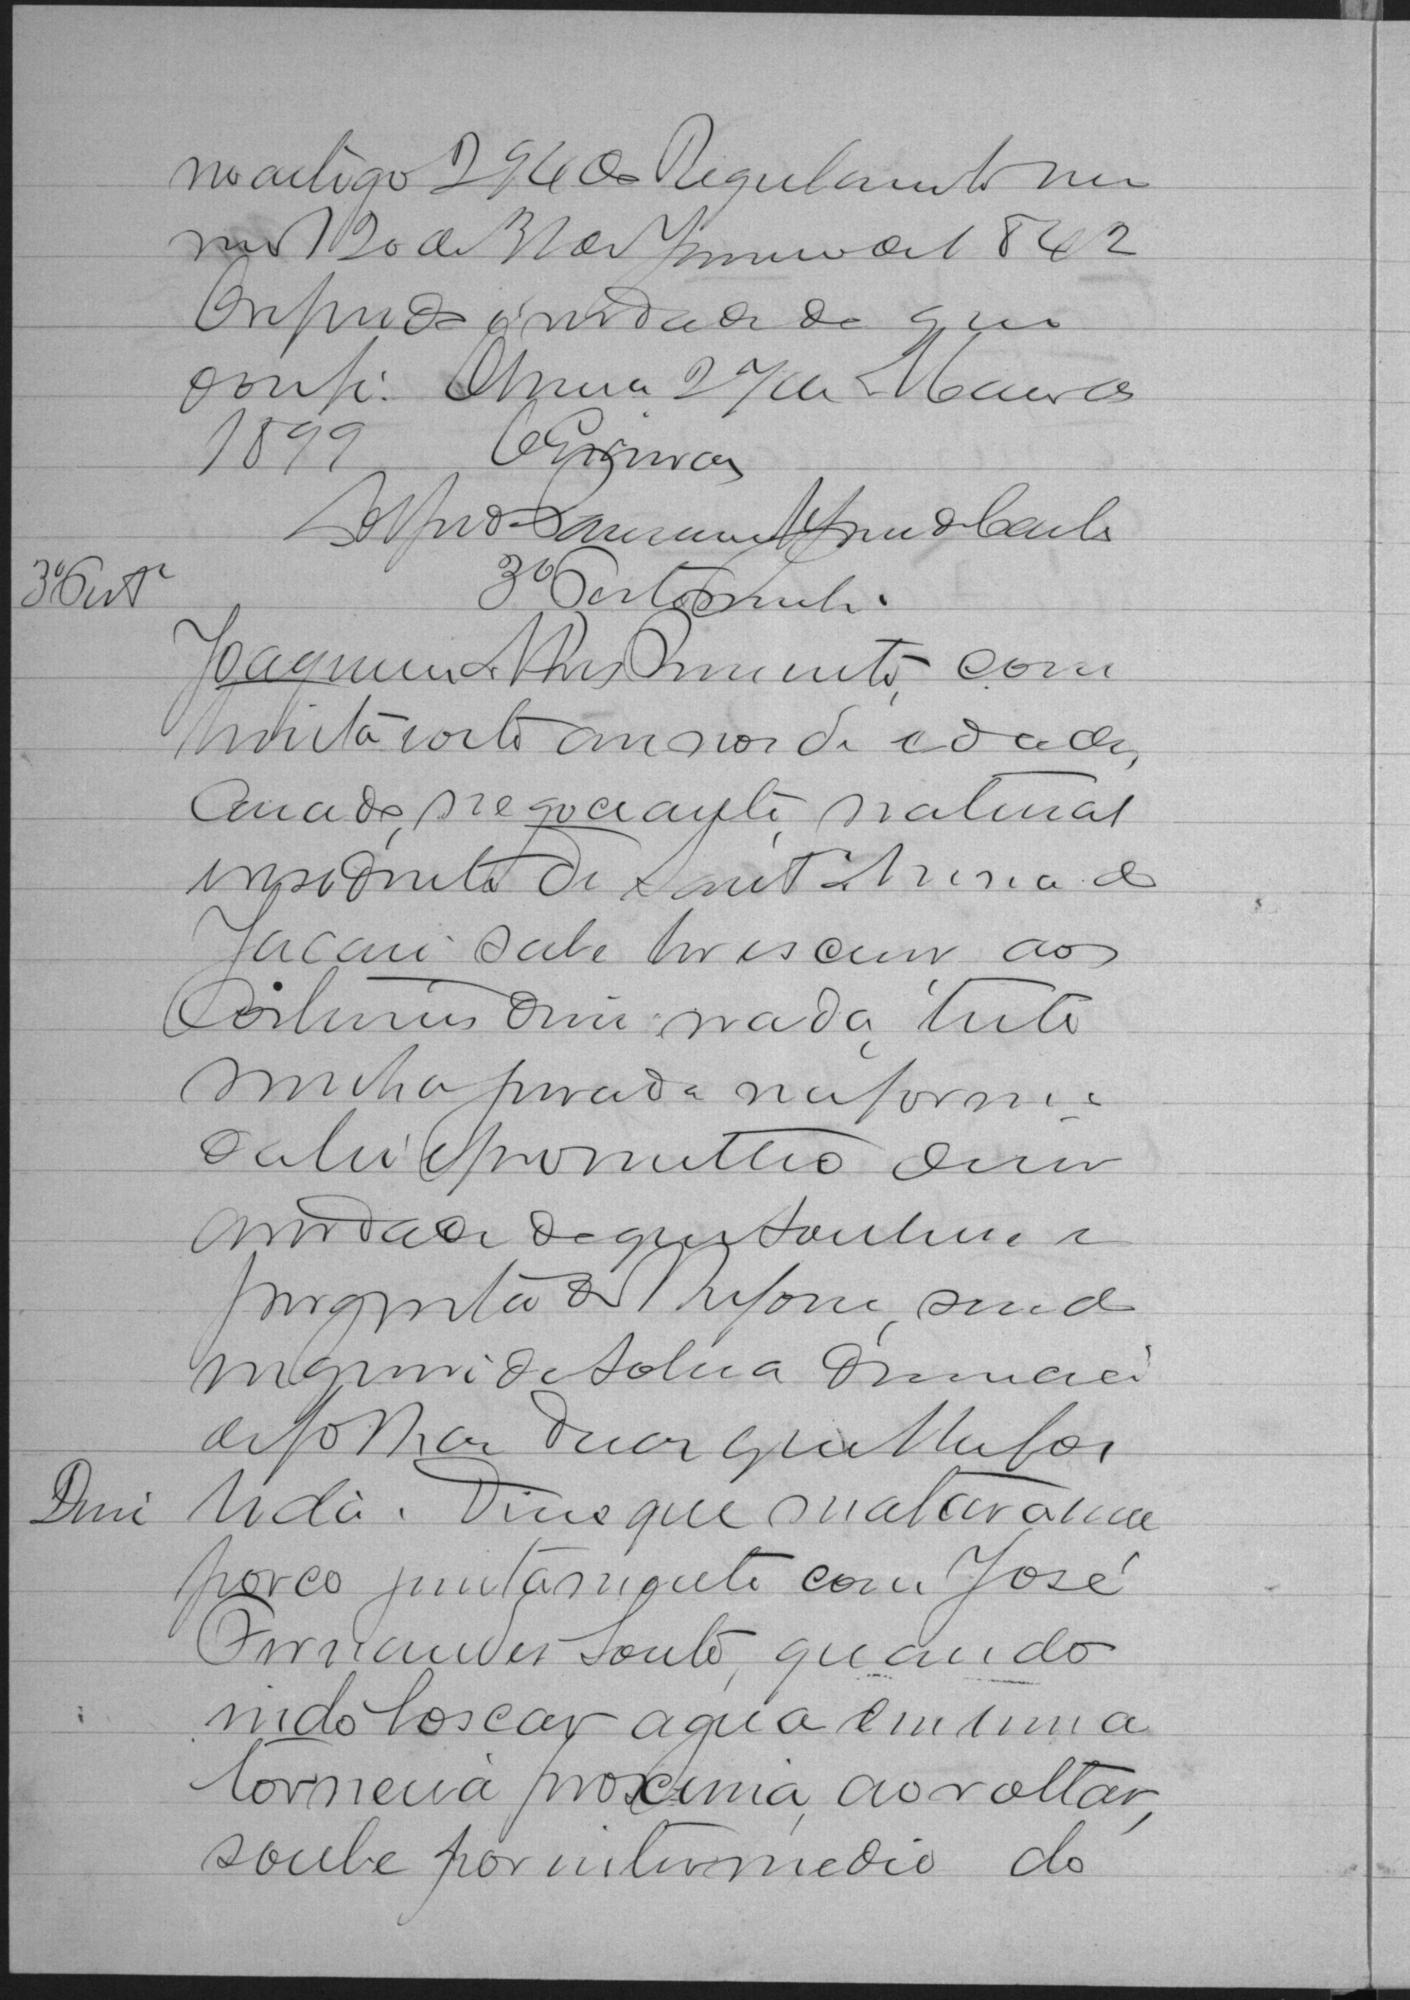 no artigo 294 do Regulamento nu
mero 120 de 31 de Janeiro de 1842
O referido é verdade do que
dou fé. 27 de Março de
1899 O Escrivão
3ª Testª
3ª Testemunha
Joaquim Alves Pimenta, com
trinta e oito annos de edade,
casado, negociante, natural
e residente de Sant'Anna do
Jacaré sabe ler e escrever aos
costumes disse nada, teste
munha jurada na forma
da lei e prometteo dizer
a verdade do que soubesse e
perguntado lhe fosse, sendo
inquirida sobre a denuncia
de folhas duas que lhe foi
Disse lida. Disse que matava um
porco juntamente com José
Fernandes Souto, quando
indo buscar agua em uma
torneira proxima, ao voltar,
soube por intermedio do